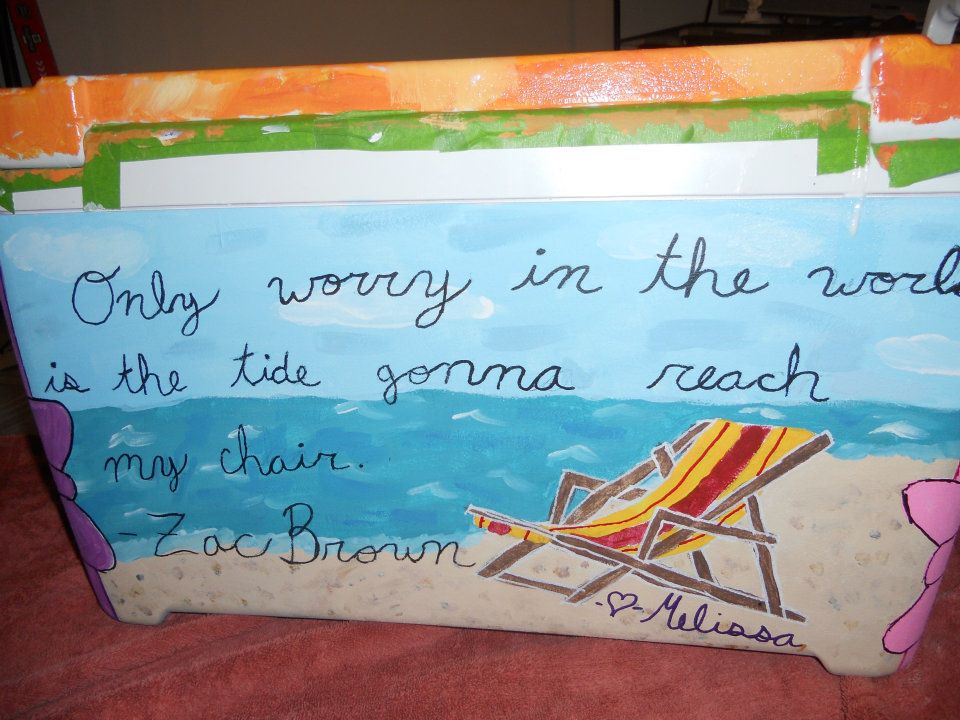 Only worry in the worl
is the tide gonna reach
my chair.
-Zac Brown
-♡-Melissa